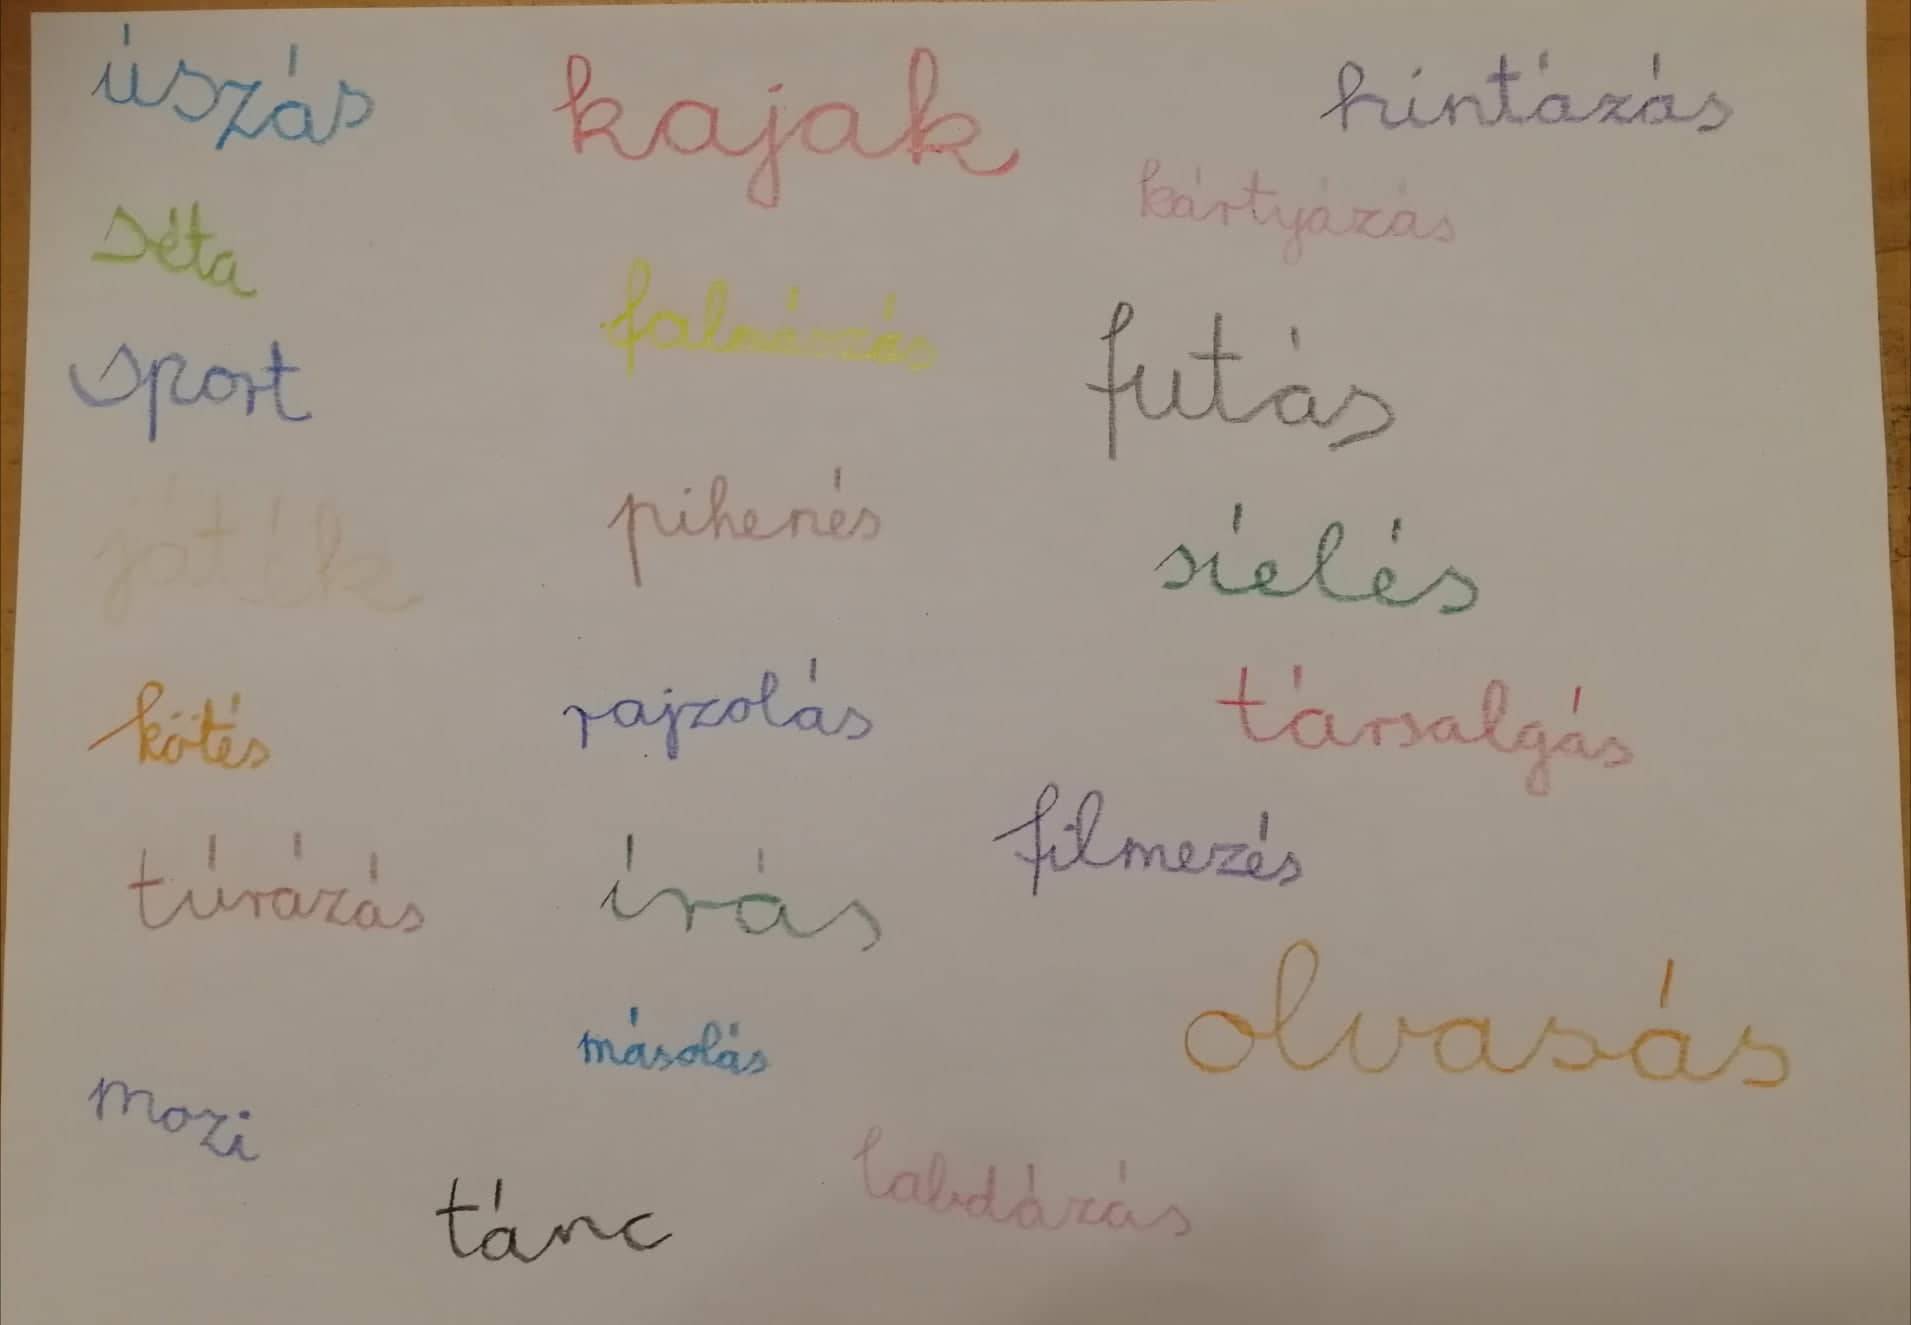 úszás
kajak
hintázás
kártyázás
séta
falmászás
sport
futás
játék
pihenés
síelés
kötés
rajzolás
társalgás
túrázás
írás
filmezés
olvasás
másolás
mozi
tánc
labdázás